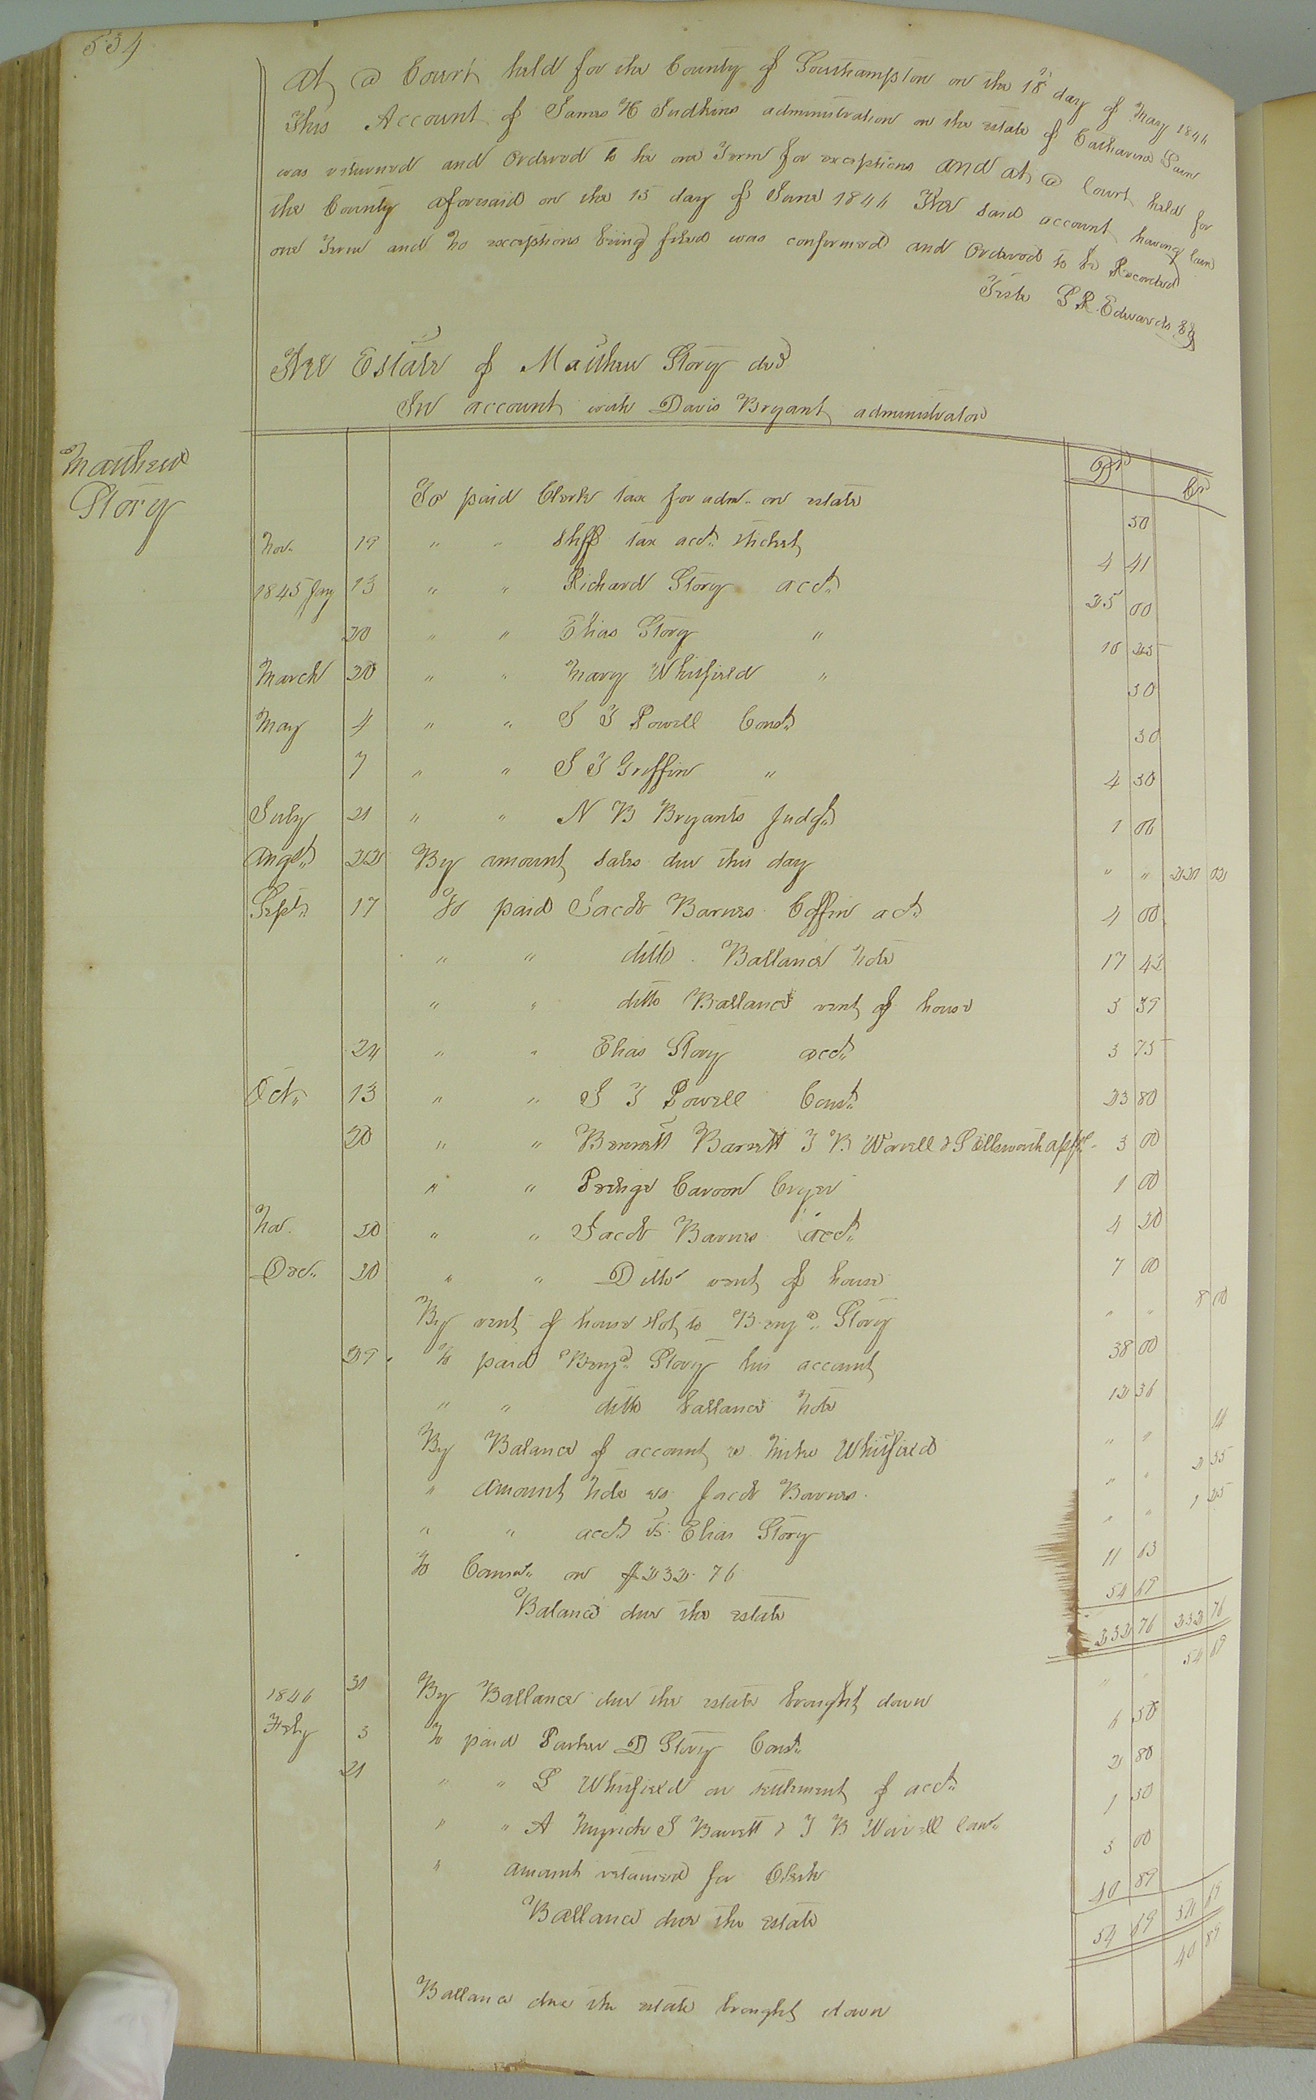 534
At a Court held for the County of Southampton on the 18 day of May 1846
This Account of James H Judkins administration on the estate of Catharine
was returned and Ordered to lie one Term for exceptions and at a Court held for
the County aforesaid on the 15 day of June 1846 The said account having lain
one Term and no exceptions being filed was confirmed and Ordered to be Recorded
Teste L R Edwards Clk
The Estate of Matthew Story decd
In account with Davis Bryant administrator
Matthew
Story
Drs Crs
To paid Clerk tax for adm. on estate 50
Nov. 19 " " Shff tax acct. ticket 4 41
1845 Jany 13 " " Richard Story acct. 25 00
20 " " Elias Story " 10 25
March 20 " " Mary Whitfield " 50
May 4 " " J T Powell Const. 30
7 " " J T Griffin " 4 30
July 21 " " N B Bryants Judgt. 1 06
Augst. 22 By amount sales due this day " " 221 02
Sept. 17 To paid Jacob Barnes Coffin act. 4 00
" " ditto Ballance Note 17 42
" " ditto Ballance rent of house 3 39
24 " " Elias Story acct. 3 75
Oct. 13 " " J T Powell Const. 23 80
20 " " Bennett Barrett J B Worrell & appr. 3 00
" " Caroon Cryer 1 00
Nov. 20 " " Jacob Barnes acct. 4 20
Dec. 20 " " Ditto rent of house 7 00
By rent of house & lot to Benjn. Story " " 8 00
29 To paid Benjn. Story his account 38 00
" " ditto ballance Note 12 36
By Balance of account vs Whitfield " "
" amount Note vs Jacob Barnes " " 2 35
" " acct vs Elias Story " " 1 25
To Comms. on $232.76 11 63
Balance due the estate 54 69
232 76 232 76
31 By Ballance due the estate brought down " " 54 69
1846
Feby 3 To paid Parker D Story Const. 6 50
21 " " L Whitfield on settlement of acct. 2 80
" " A Myrick J Barrett & J B Worrell 1 50
" amount retained for Clerk 3 00
Ballance due the estate 40 89
54 69 54 69
Ballance due the estate brought down 40 89